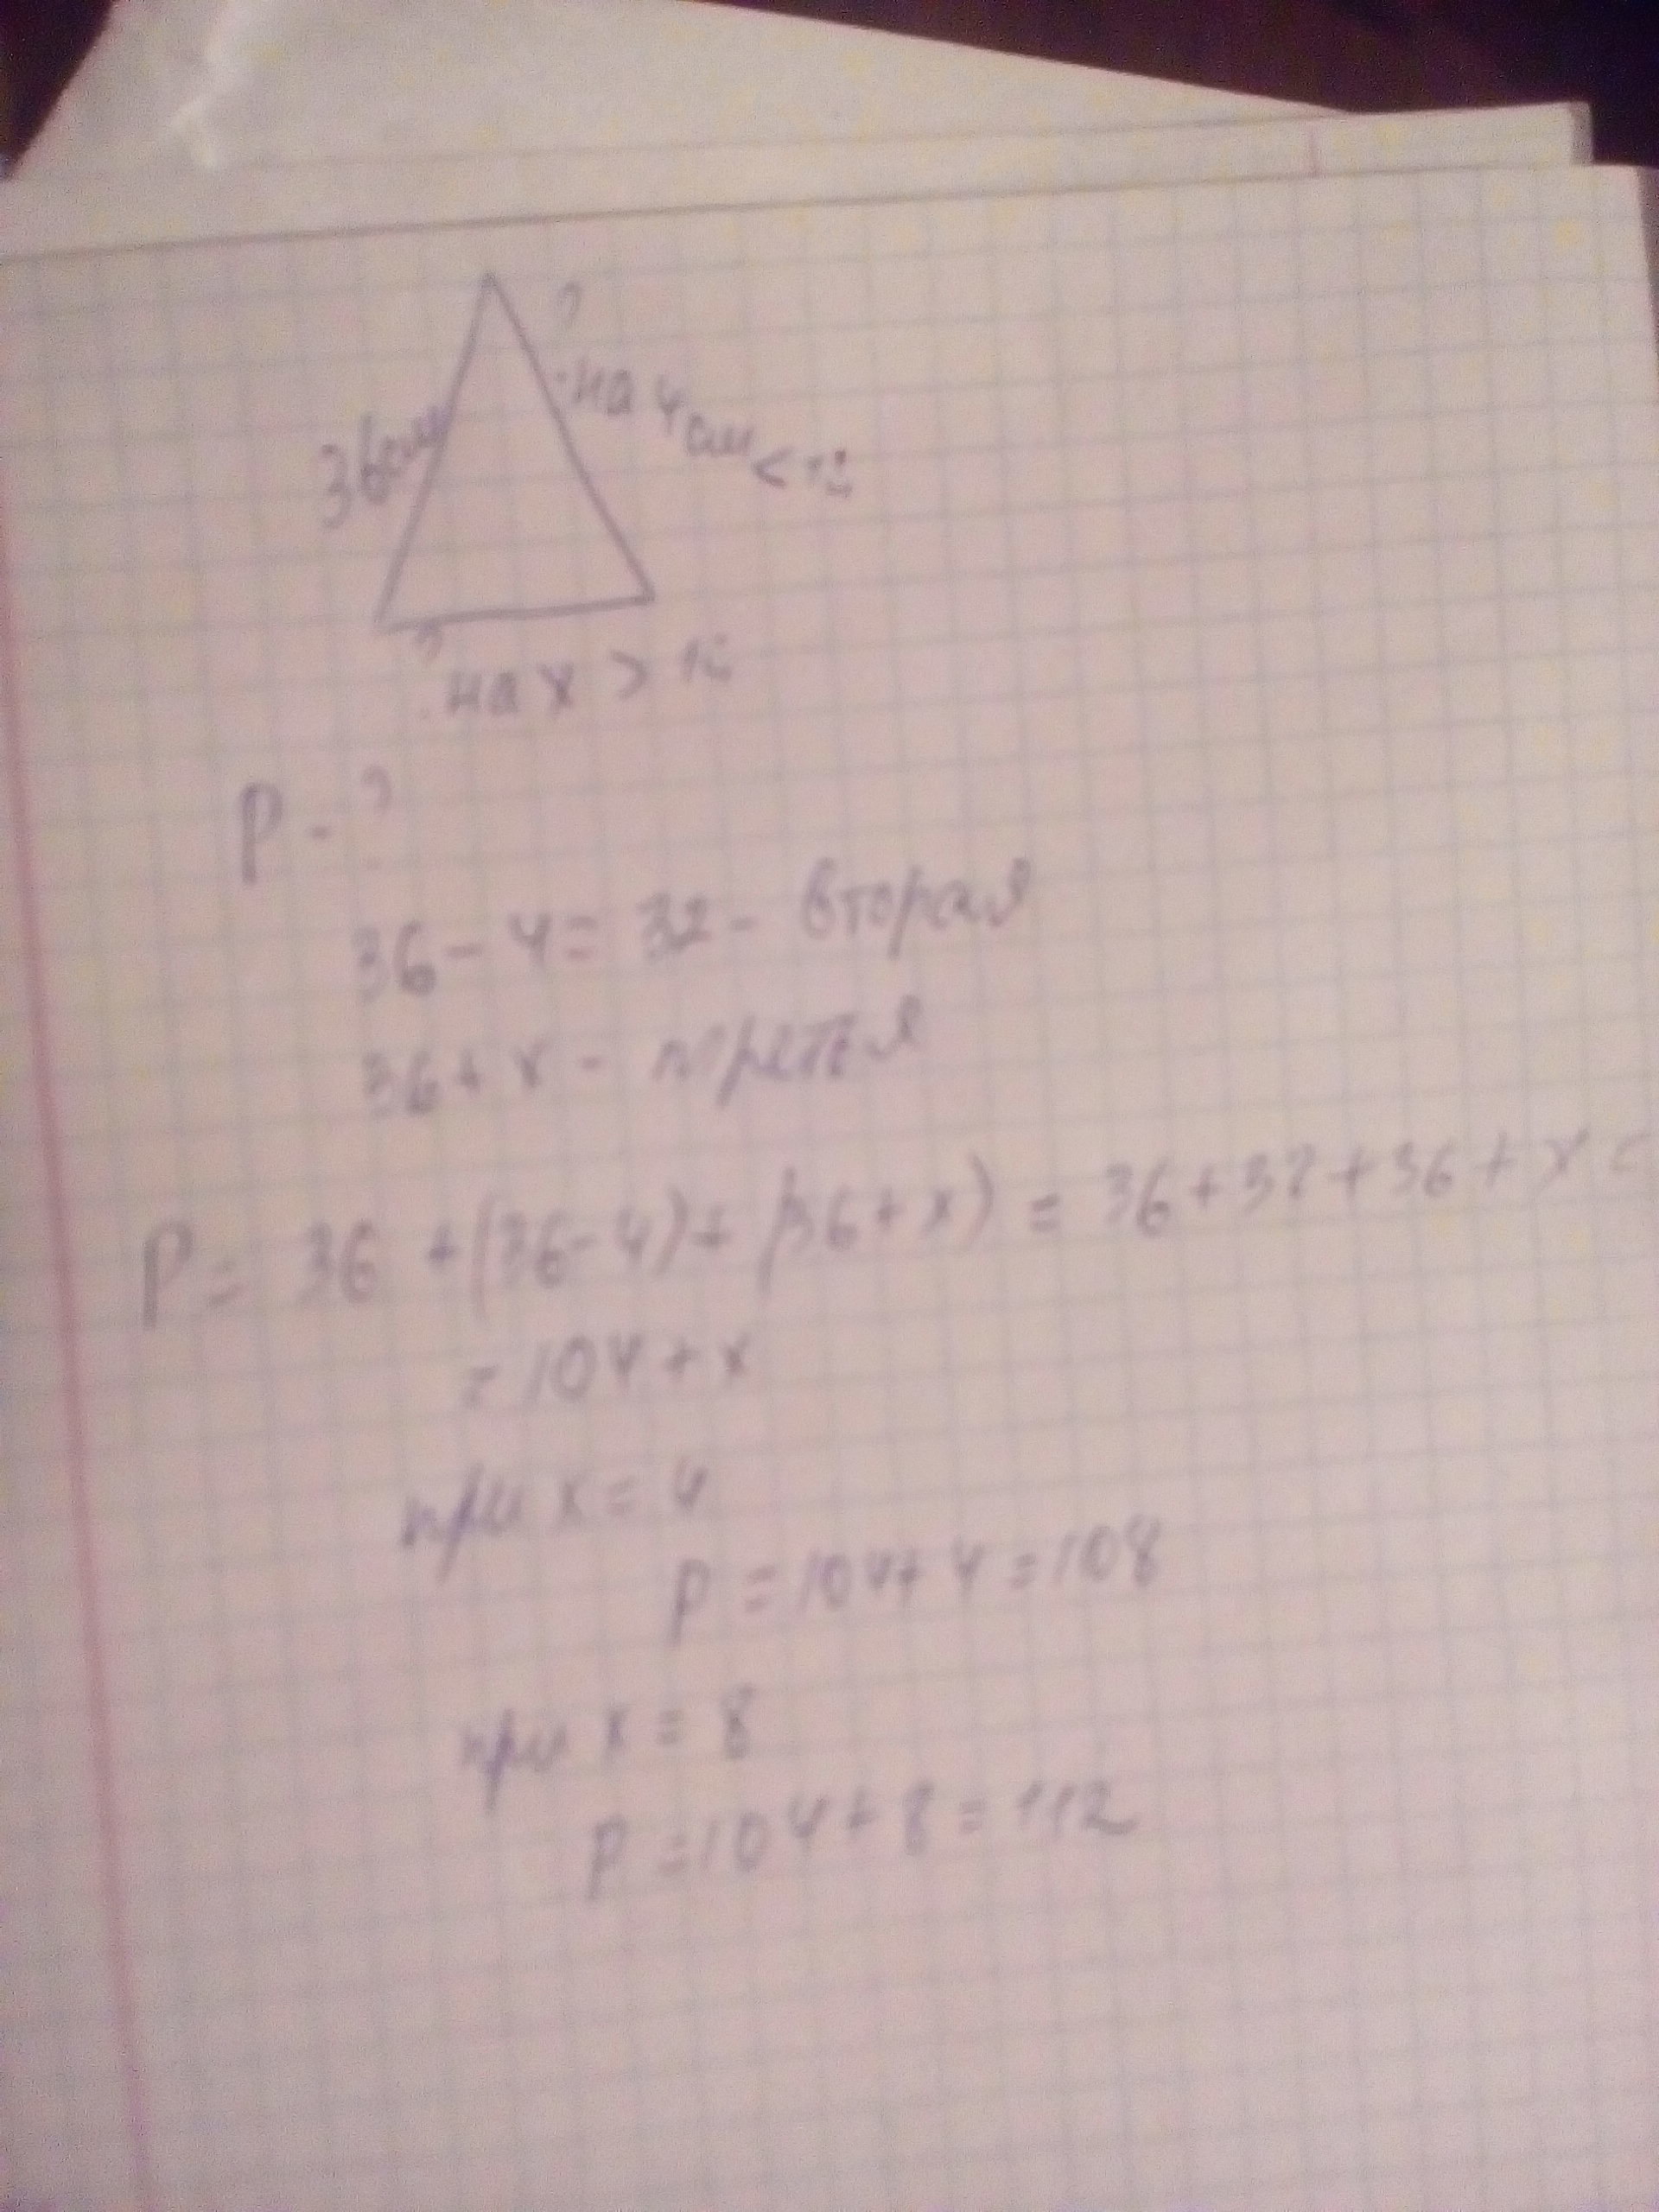 ?
36см
на 4см < 1й
?
на х > 1й
Р - ?
36 - 4 = 32 - вторая
36 + х - третья
Р = 36 + (36 - 4) + (36 + х) = 36 + 32 + 36 + х =
= 104 + х
при х = 4
Р = 104 + 4 = 108
при х = 8
Р = 104 + 8 = 112